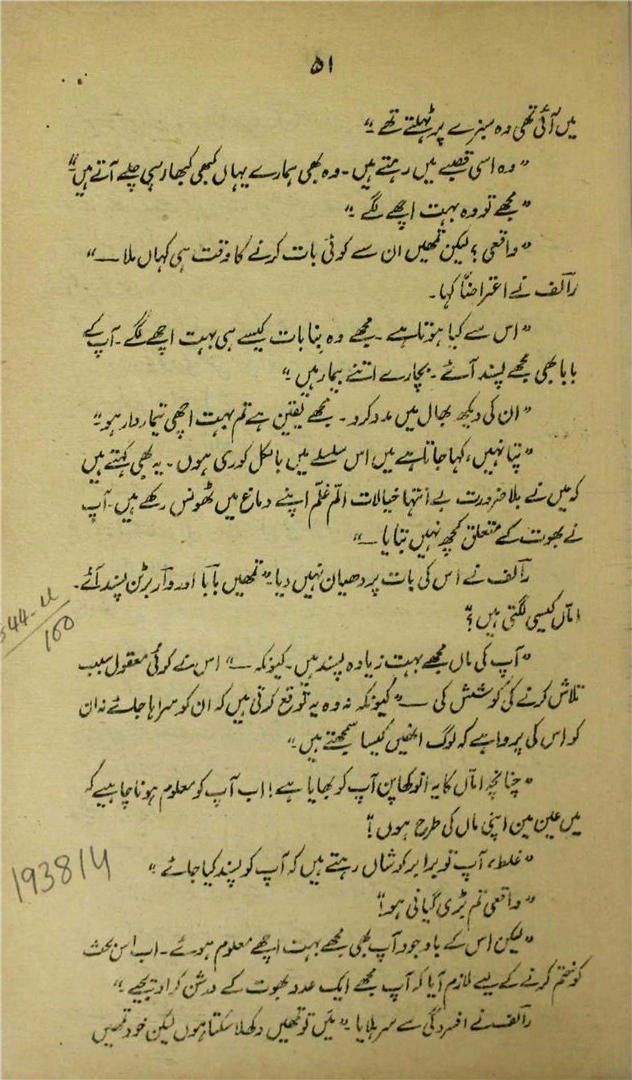 ۵۱
میں آئی تھی وہ سبزے پر ٹہلتے تھے۔“
”وہ اسی قصبے میں رہتے ہیں۔ وہ بھی ہمارے یہاں کبھی کبھار ہی چلے آتے ہیں“
”مجھے تو وہ بہت اچھے لگے۔“
”واقعی؟ لیکن تمھیں ان سے کوئی بات کرنے کا وقت ہی کہاں ملا ــــ“
رآلف نے اعتراضاً کہا۔
”اس سے کیا ہوتا ہے۔ مجھے وہ بِنا بات کیسے ہی بہت اچھے لگے۔ آپ کے
بابا بھی مجھے پسند آئے۔ بچارے اتنے بیمار ہیں۔“
”ان کی دیکھ بھال میں مدد کرو۔ مجھے یقین ہے تم بہت اچھی تیماردار ہو۔“
”پتا نہیں، کہا جاتا ہے میں اس سلسلے میں بالکل کوری ہوں۔ یہ بھی کہتے ہیں
کہ میں نے بلا ضرورت بے انتہا خیالات الّم غلّم اپنے دماغ میں ٹھونس رکھے ہیں۔ آپ
نے بھوت کے متعلق کچھ نہیں بتایا ــــ“
رآلف نے اس کی بات پر دھیان نہیں دیا۔ ”تمھیں بآبا اور وآربرٹن پسند آئے۔
امآں کیسی لگتی ہیں؟“
544-11
100
”آپ کی ماں مجھے بہت زیادہ پسند ہیں۔ کیونکہ ــــ“ اس نے کوئی معقول سبب
تلاش کرنے کی کوشش کی ــــ ”کیونکہ نہ وہ یہ توقع کرتی ہیں کہ ان کو سراہا جائے نہ ان
کو اس کی پروا ہے کہ لوگ انھیں کیسا سمجھتے ہیں۔“
”چنانچہ امآں کا یہ انوکھا پن آپ کو بھایا ہے! اب آپ کو معلوم ہونا چاہیے کہ
میں عین مین اپنی ماں کی طرح ہوں؟“
”غلط، آپ تو برابر کوشاں رہتے ہیں کہ آپ کو پسند کیا جائے۔“
193814
”واقعی تم بڑی گیانی ہو!“
”لیکن اس کے باوجود آپ بھی مجھے بہت اچھے معلوم ہوئے۔ اب اس بحث
کو ختم کرنے کے لیے لازم آیا کہ آپ مجھے ایک عدد بھوت کے درشن کرا دیجیے۔“
رآلف نے افسردگی سے سر ہلایا۔ ”میں تو تمھیں دکھلا سکتا ہوں لیکن خود تمھیں